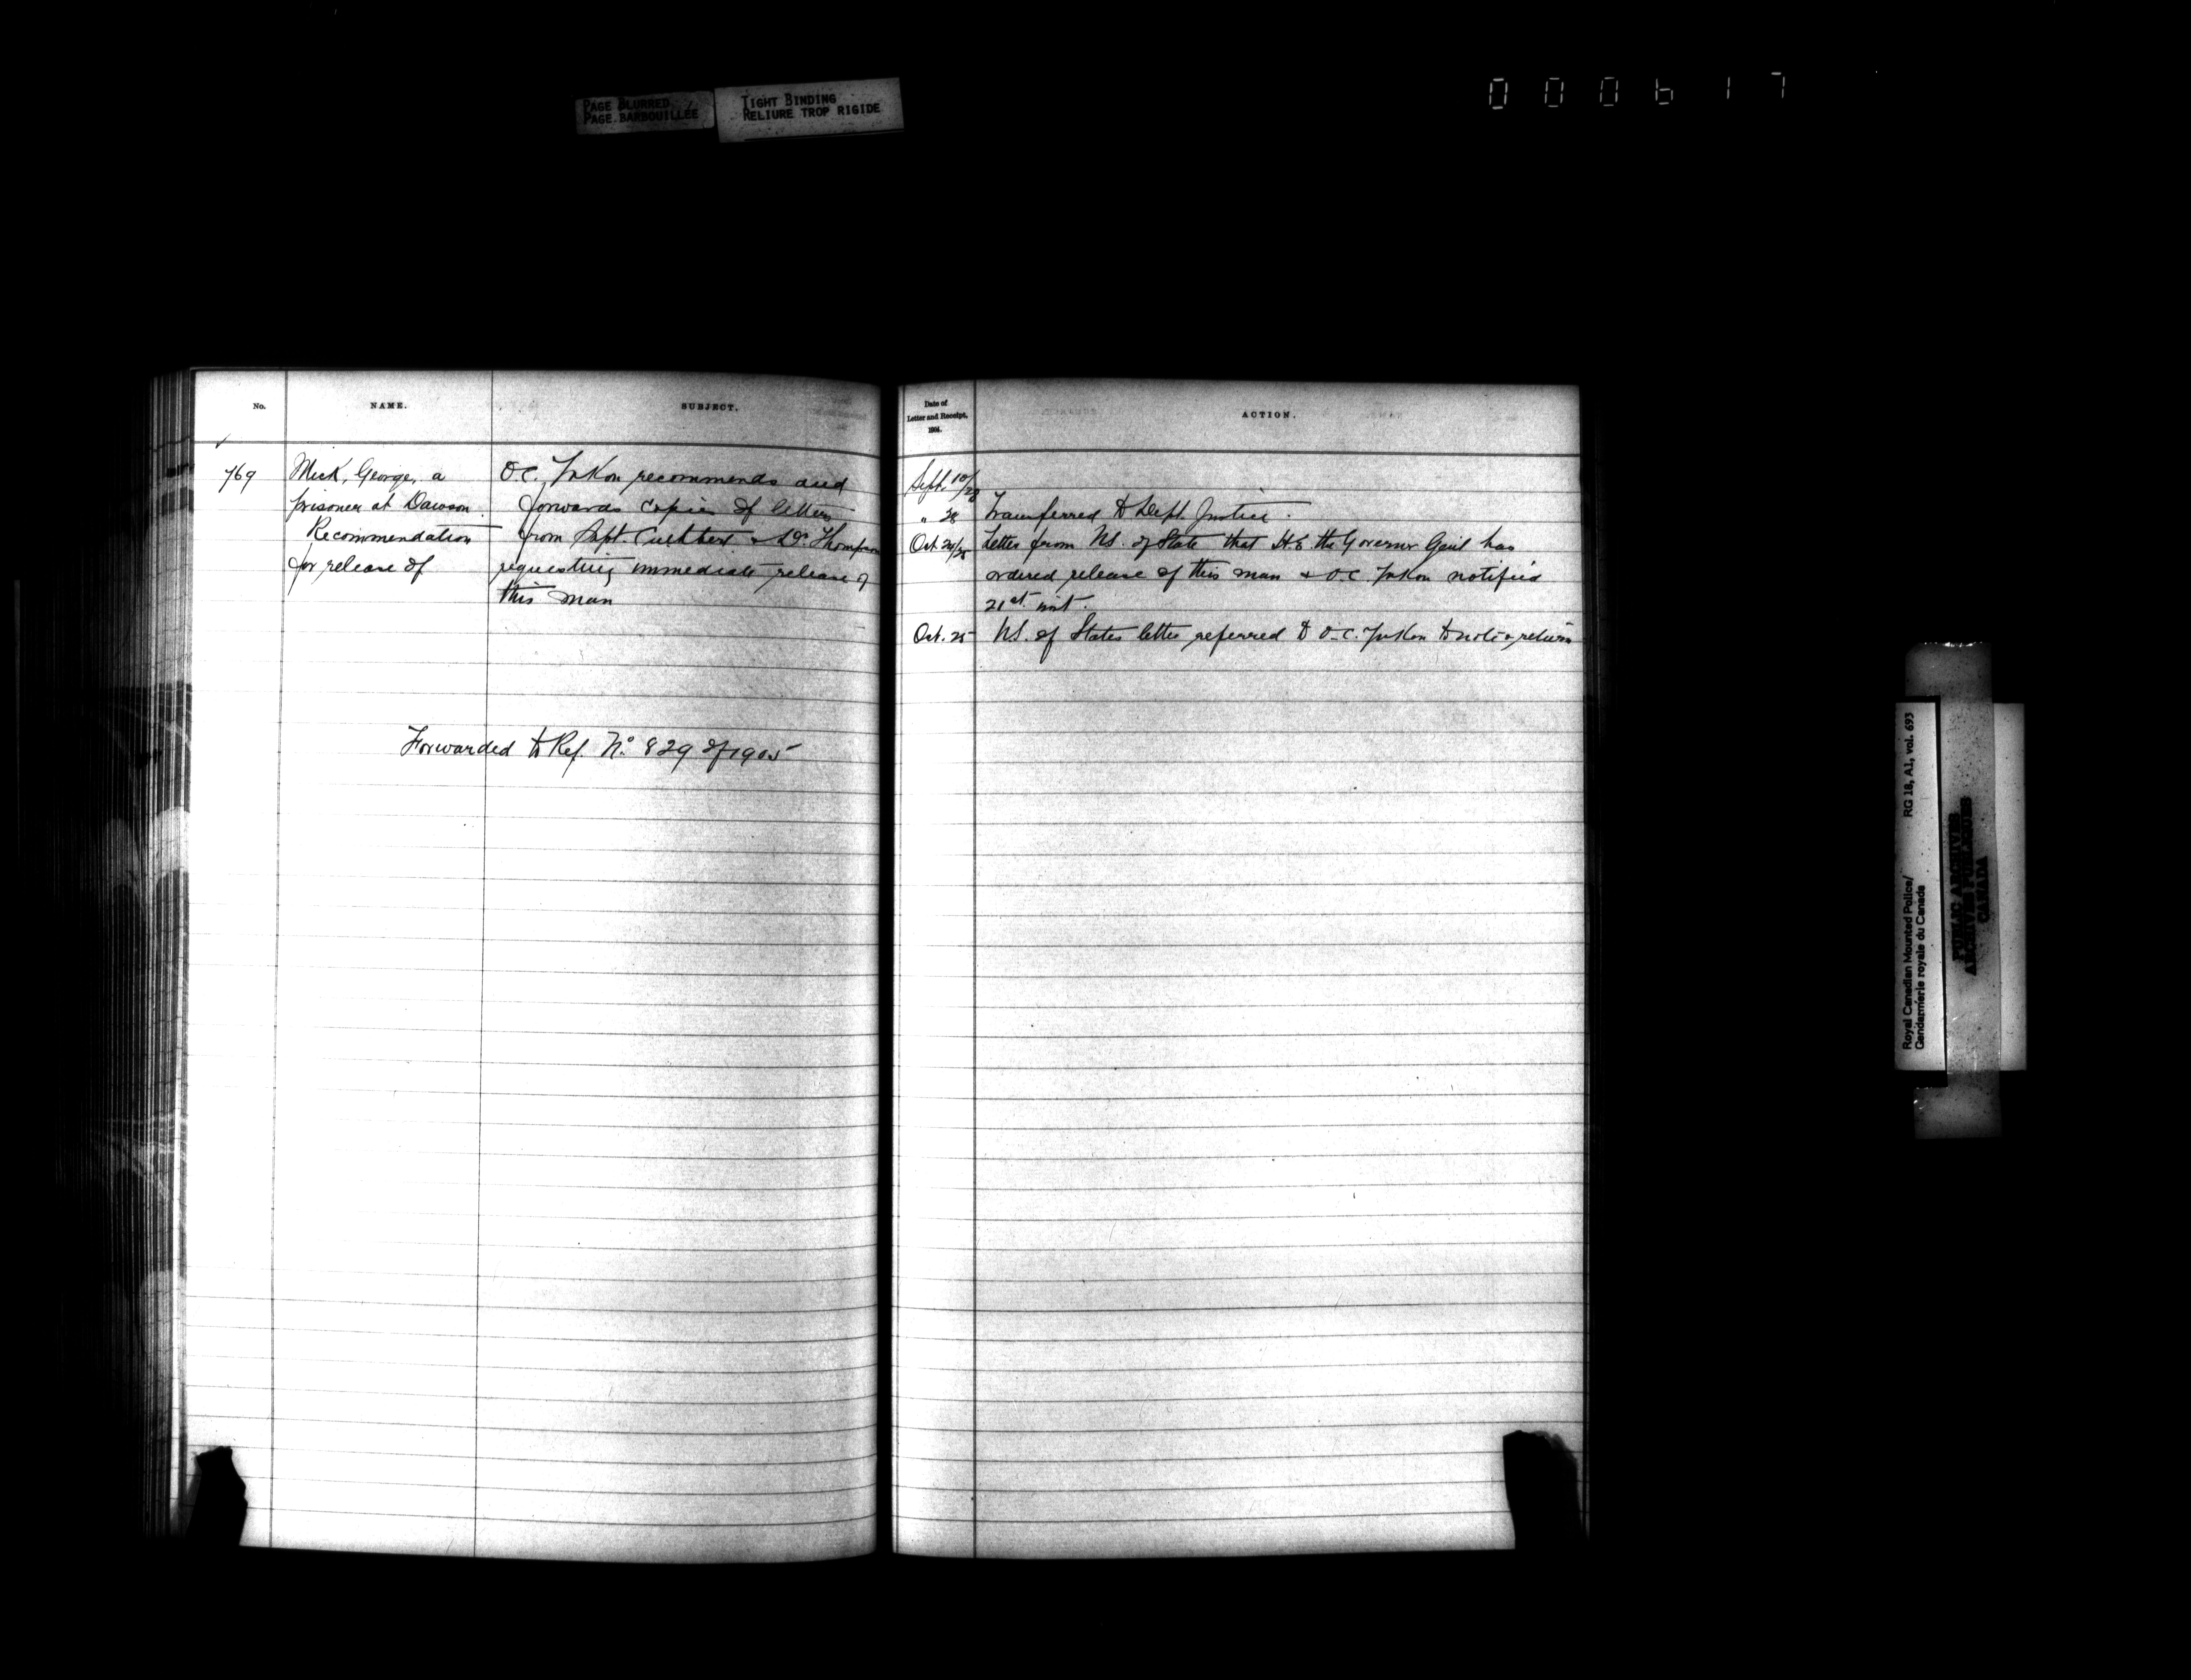 PAGE BLURRED
PAGE BARBOUILLEE
TIGHT BINDING
RELIURE TROP RIGIDE
000617
No.
NAME.
SUBJECT.
769
Mick, George, a
prisoner at Dawson
Recommendation
for release of
O.C. Yukon recommends and
forwards copies of letters
from Supt. Cuthbert & Dr. Thompson
requesting immediate release of
this man
Forwarded to Ref. No. 829 of 1905
Date of
Letter and Receipt,
1904.
ACTION.
Sept. 10/28
" 28 Transferred to Dept. Justice.
Oct. 24/25 Letter from U.S. of State that H.E. the Governor Genl has
ordered release of this man & O.C. Yukon notified
21st inst.
Oct. 25 U.S. of States letter referred to O.C. Yukon to note & return
Royal Canadian Mounted Police/
Gendarmerie royale du Canada
RG 18, A1, vol. 693
PUBLIC ARCHIVES
ARCHIVES PUBLIQUES
CANADA